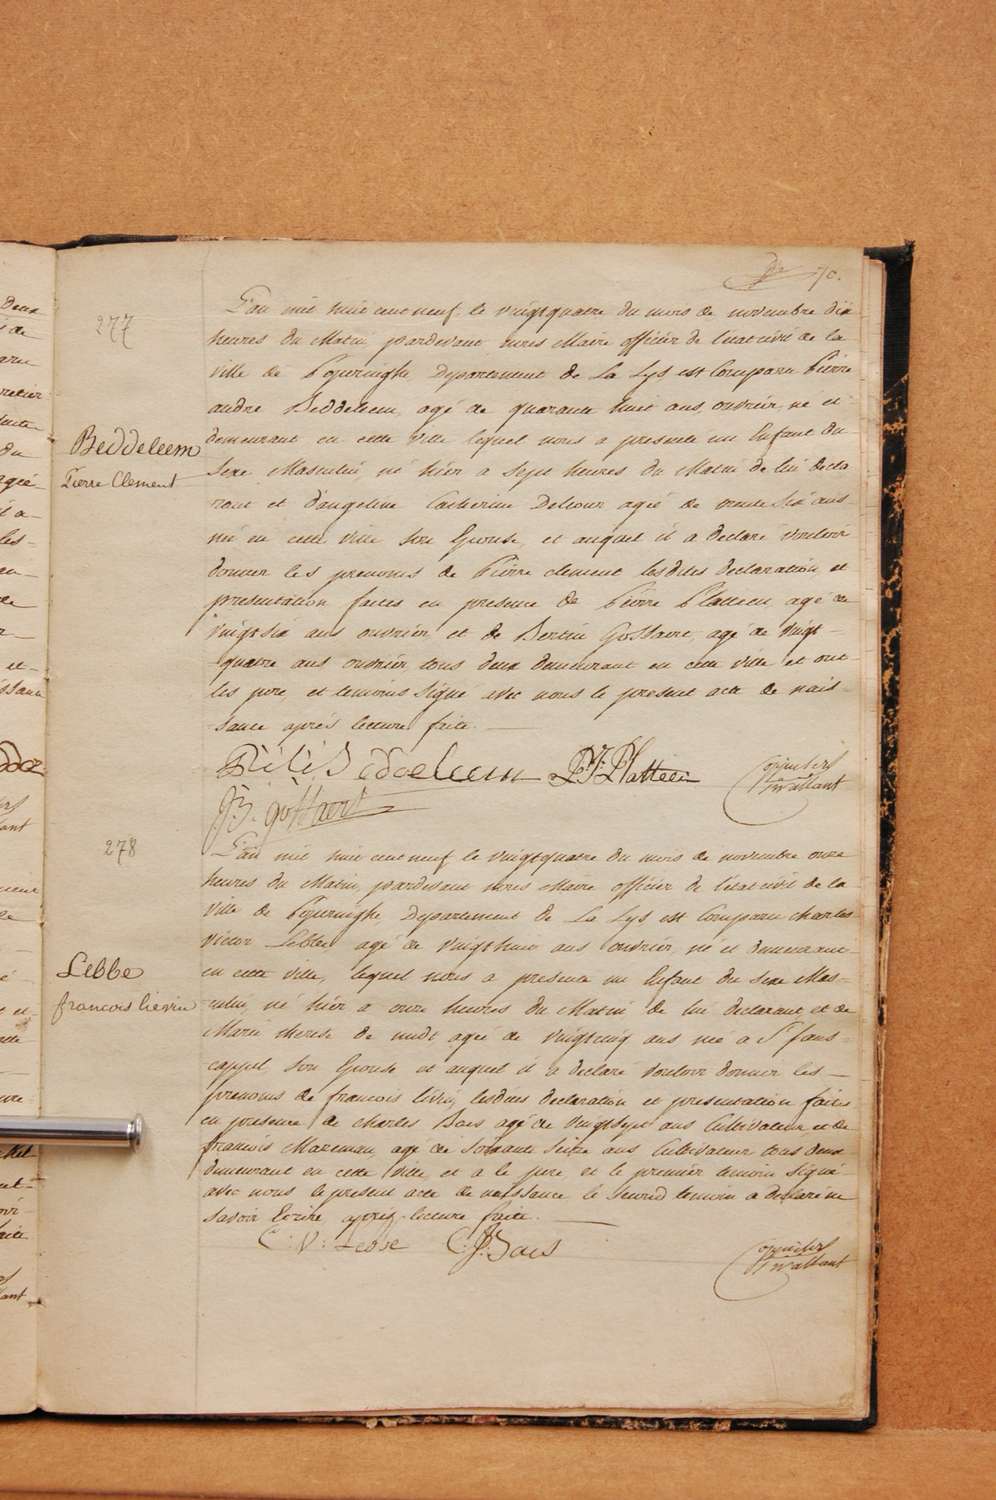 70.
277
Beddeleem
Pierre Clement
L'an mil huit cent neuf, le vingtquatre du mois de novembre dix
heures du Matin, pardevant nous Maire officier de l'etat civil de la
ville de Poperinghe, Departement de La Lys est Comparu Pierre
andre Beddeleem, agé de quarante huit ans, ouvrier, né et
demeurant en cette ville lequel nous a presenté un Enfant du
Sexe Masculin, né hier a Sept heures du Matin de lui decla
rant et d'angeline Catherine Delcour agée de trente Six ans
née en cette ville son Epouse, et auquel il a declaré vouloir
donner les prenoms de Pierre clement lesdites declaration et
presentation faites en presence de Pierre Platteeu agé de
vingt six ans ouvrier et de Bertin Gossaert, agé de vingt-
quatre ans ouvrier tous deux demeurant en cette ville et ont
les pere et temoins signé avec nous le present acte de nais-
sance après lecture faite.
Beddeleem P.J. Platteeu
J.B. gossaert
278
Lebbe
francois lievin
L'an mil huit cent neuf le vingtquatre du mois de novembre onze
heures du Matin, pardevant nous Maire officier de l'etat civil de la
ville de Poperinghe Departement de La Lys est Comparu charles
victor Lebbe agé de vingthuit ans ouvrier, né et demeurant
en cette ville, lequel nous a presenté un Enfant du sexe Mas-
culin, né hier a onze heures du Matin de lui declarant et de
Marie therese de agée de vingtcinq ans née a St Jans
cappel son Epouse et auquel il a declaré vouloir donner les
prenoms de francois livin, lesdites declaration et presentation faites
en presence de charles Baes agé de vingtsept ans Cultivateur et de
francois agé de soixante ans Cultivateur tous deux
demeurant en cette ville, et a le pere et le premier temoin signé
avec nous le present acte de naissance le second temoin a declaré ne
savoir Ecrire, après lecture faite.
C: V: Lebbe C:J: Baes